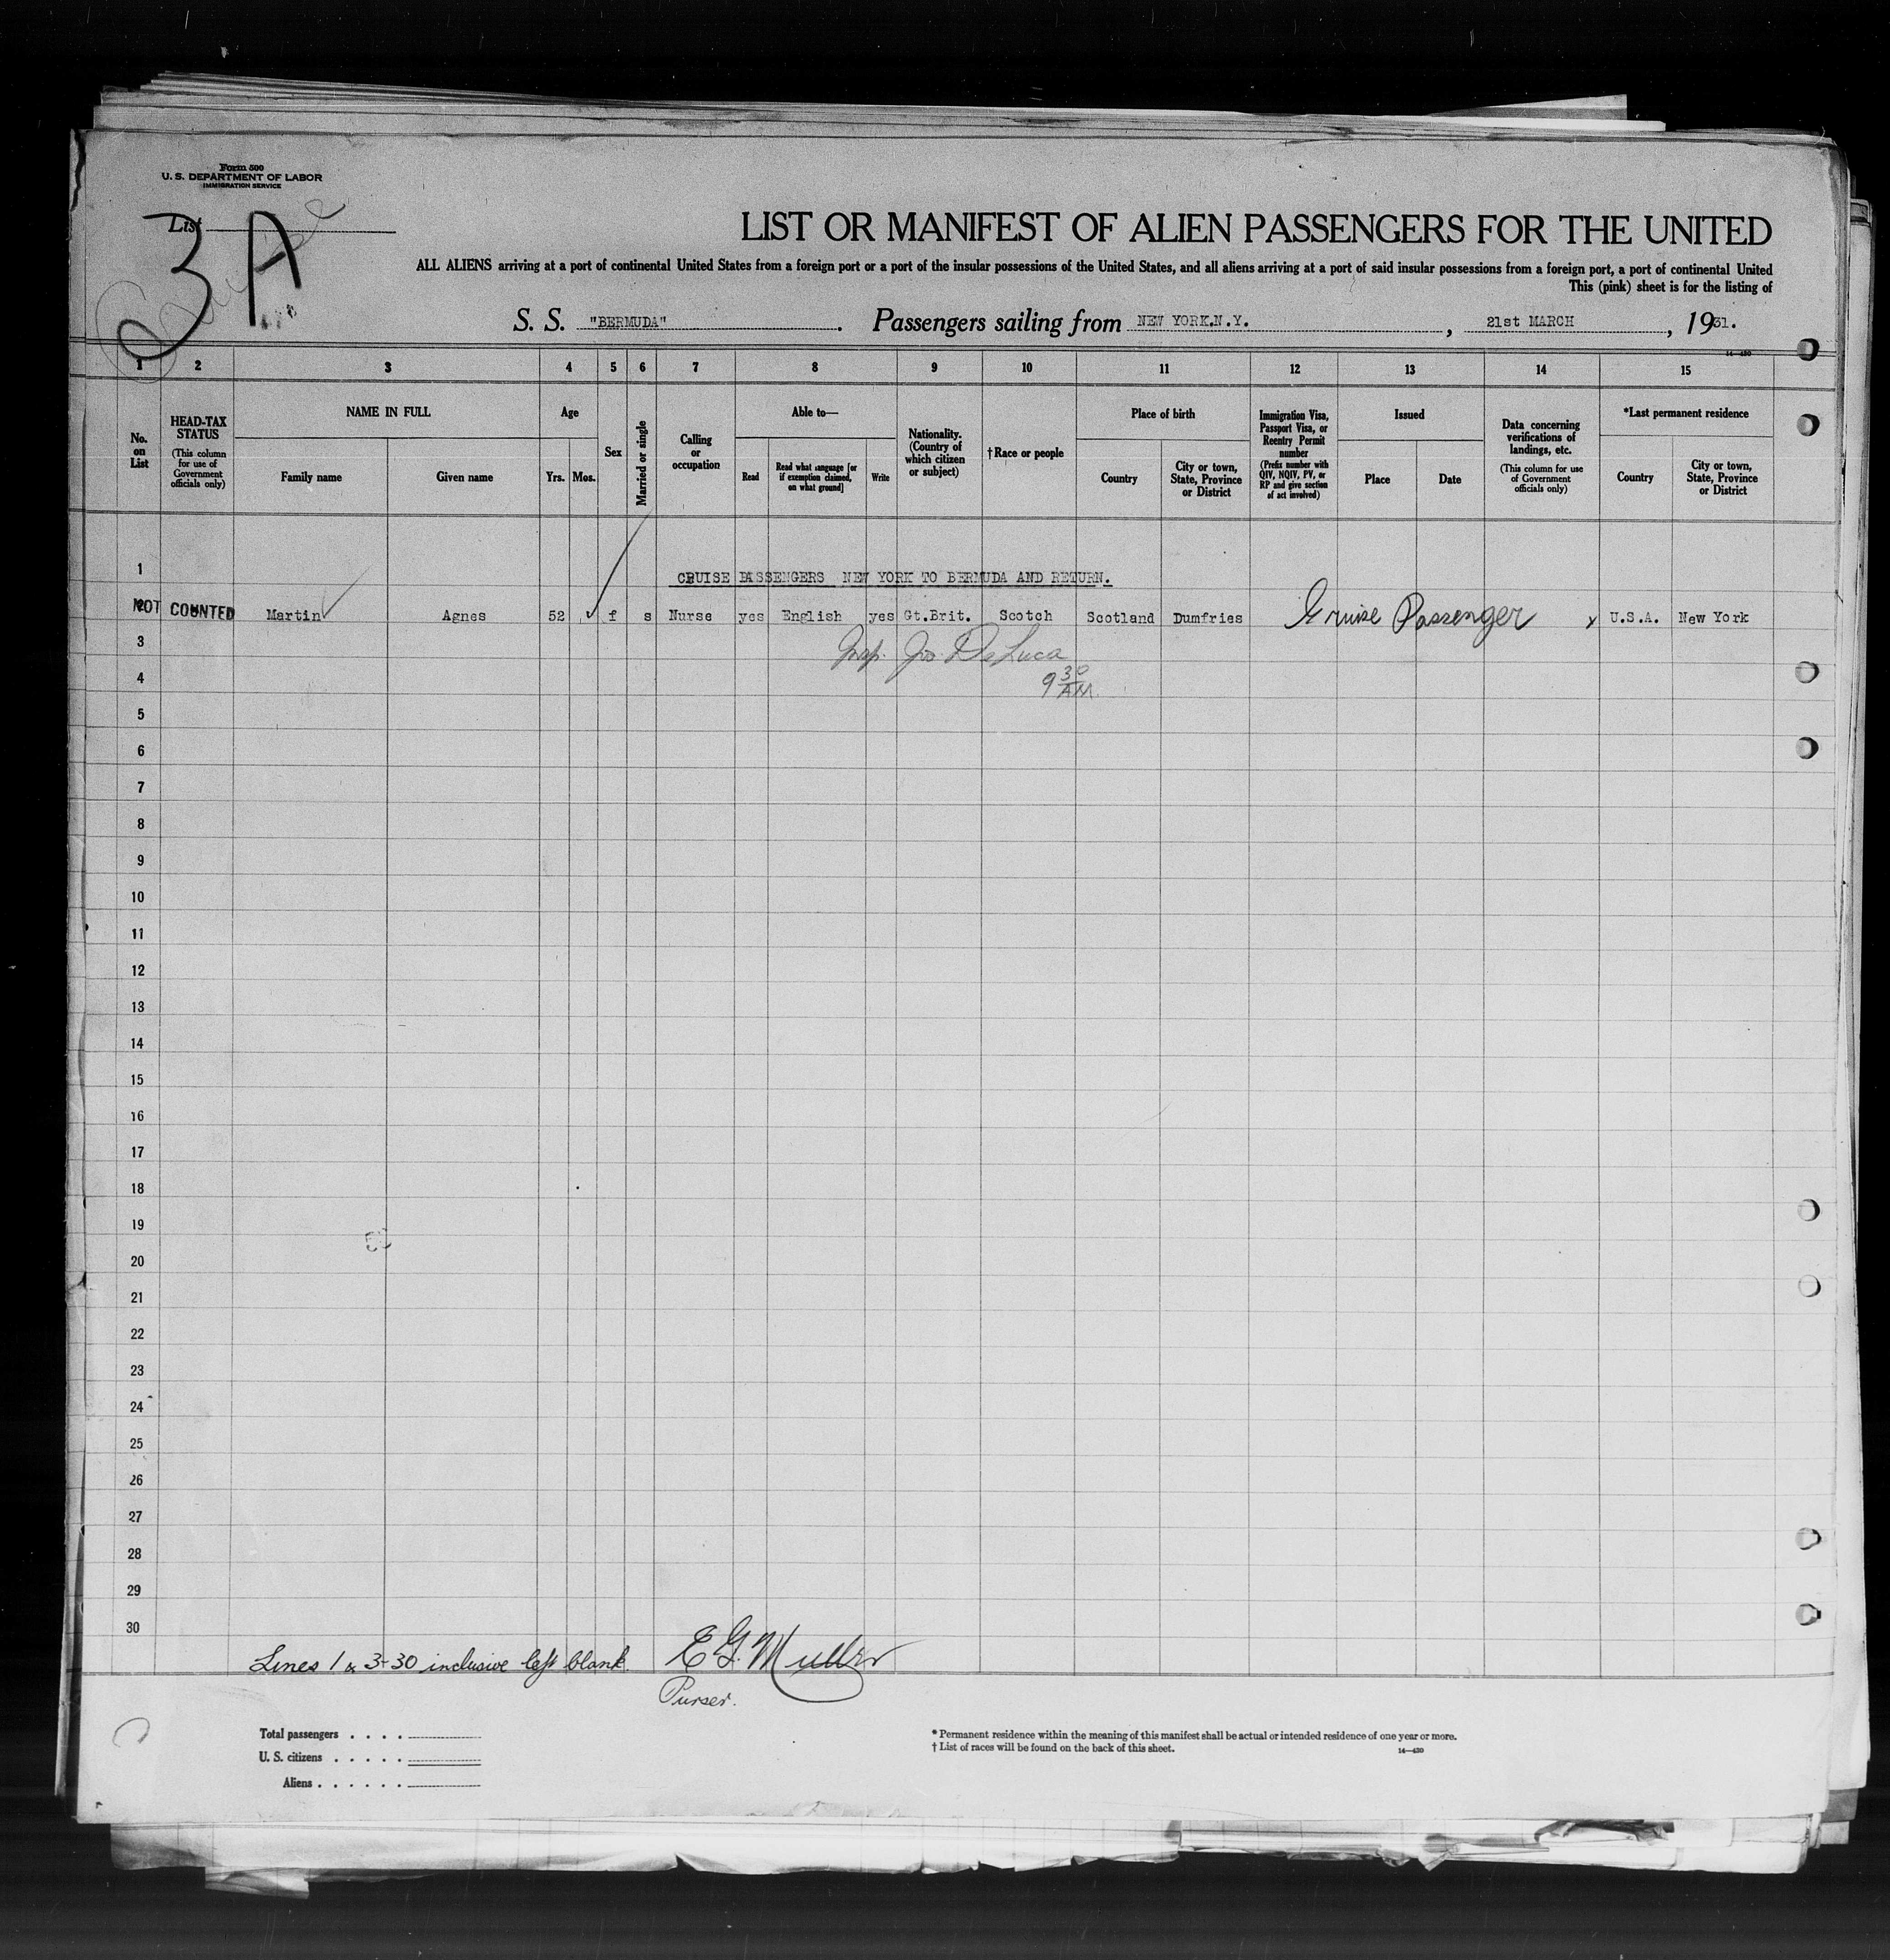 Form 500
U. S. DEPARTMENT OF LABOR
IMMIGRATION SERVICE
List
3 A
LIST OR MANIFEST OF ALIEN PASSENGERS FOR THE UNITED
ALL ALIENS arriving at a port of continental United States from a foreign port or a port of the insular possessions of the United States, and all aliens arriving at a port of said insular possessions from a foreign port, a port of continental United
This (pink) sheet is for the listing of
S. S. "BERMUDA". Passengers sailing from NEW YORK.N.Y., 21st MARCH, 1931.
14—430
1 2 3 4 5 6 7 8 9 10 11 12 13 14 15
No. on List
HEAD-TAX STATUS (This column for use of Government officials only)
NAME IN FULL
Family name
Given name
Age
Yrs.
Mos.
Sex
Married or single
Calling or occupation
Able to—
Read
Read what language [or if exemption claimed, on what ground]
Write
Nationality. (Country of which citizen or subject)
†Race or people
Place of birth
Country
City or town, State, Province or District
Immigration Visa, Passport Visa, or Reentry Permit number (Prefix number with QIV, NQIV, PV, or RP and give section of act involved)
Issued
Place
Date
Data concerning verifications of landings, etc. (This column for use of Government officials only)
*Last permanent residence
Country
City or town, State, Province or District
1 CRUISE PASSENGERS NEW YORK TO BERMUDA AND RETURN.
2 NOT COUNTED Martin Agnes 52 f s Nurse yes English yes Gt.Brit. Scotch Scotland Dumfries Cruise Passenger x U.S.A. New York
3 Insp. Jos DeLuca
4 9 30 AM.
5
6
7
8
9
10
11
12
13
14
15
16
17
18
19
20
21
22
23
24
25
26
27
28
29
30
Lines 1 & 3-30 inclusive left blank. E G Muller
Purser.
Total passengers . . . .
U. S. citizens . . . . .
Aliens . . . . . .
* Permanent residence within the meaning of this manifest shall be actual or intended residence of one year or more.
† List of races will be found on the back of this sheet.
14—430